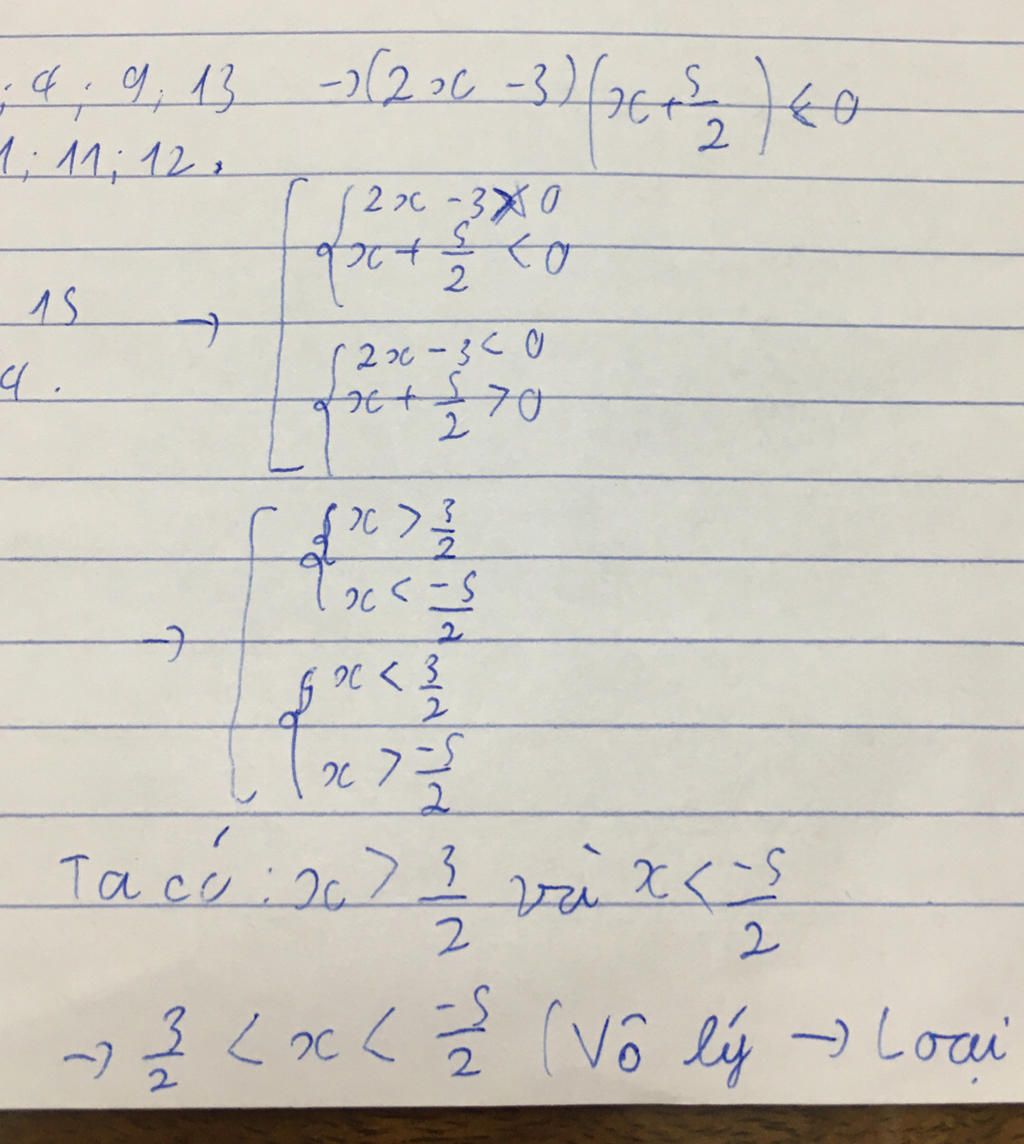 ; 4 ; 9 ; 13 → (2x - 3)(x + 5/2) < 0
1 ; 11 ; 12 .
2x - 3 > 0
x + 5/2 < 0
15 →
2x - 3 < 0
4 .
x + 5/2 > 0
x > 3/2
x < -5/2
→
x < 3/2
x > -5/2
Ta có : x > 3/2 và x < -5/2
→ 3/2 < x < -5/2 (Vô lý → Loại